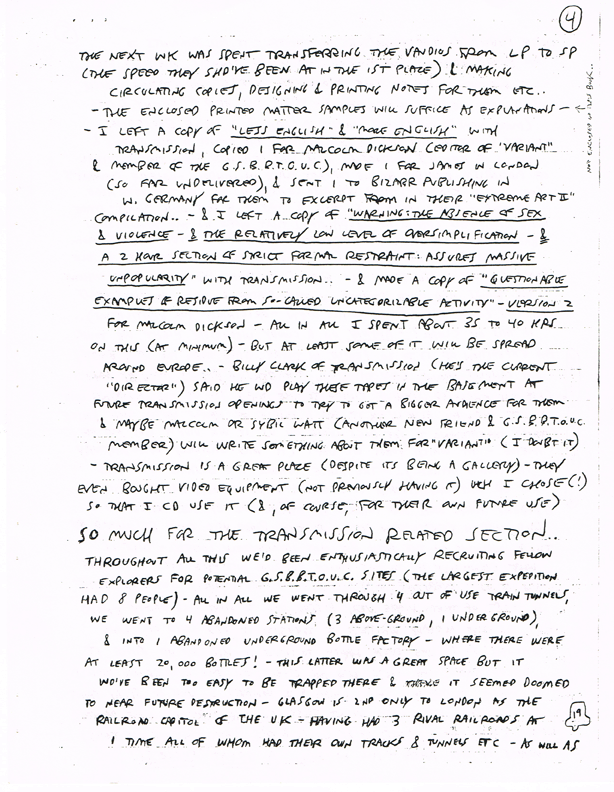 4
THE NEXT WK WAS SPENT TRANSFERRING THE VAUDIOS FROM LP TO SP
(THE SPEED THEY SHD'VE BEEN AT IN THE 1ST PLACE) & MAKING
CIRCULATING COPIES, DESIGNING & PRINTING NOTES FOR THEM ETC..
- THE ENCLOSED PRINTED MATTER SAMPLES WILL SUFFICE AS EXPLANATIONS -
- I LEFT A COPY OF "LESS ENGLISH - & "MORE ENGLISH" WITH
TRANSMISSION, COPIED 1 FOR MALCOLM DICKSON (EDITOR OF "VARIANT"
& MEMBER OF THE G.S.B.R.T.O.U.C.), MADE 1 FOR JAMES IN LONDON
(SO FAR UNDELIVERED), & SENT 1 TO BIZARR PUBLISHING IN
W. GERMANY FOR THEM TO EXCERPT FROM IN THEIR "EXTREME ART II"
COMPILATION.. - & I LEFT A COPY OF "WARNING: THE ABSENCE OF SEX
& VIOLENCE - & THE RELATIVELY LOW LEVEL OF OVERSIMPLIFICATION - &
A 2 HOUR SECTION OF STRICT FORMAL RESTRAINT: ASSURES MASSIVE
UNPOPULARITY" WITH TRANSMISSION.. - & MADE A COPY OF "QUESTIONABLE
EXAMPLES OF RESIDUE FROM SO-CALLED UNCATEGORIZABLE ACTIVITY" - VERSION 2
FOR MALCOLM DICKSON - ALL IN ALL I SPENT ABOUT 35 TO 40 HRS
ON THIS (AT MINIMUM) - BUT AT LEAST SOME OF IT WILL BE SPREAD
AROUND EUROPE.. - BILLY CLARK OF TRANSMISSION (HE'S THE CURRENT
"DIRECTOR") SAID HE WD PLAY THESE TAPES IN THE BASEMENT AT
FUTURE TRANSMISSION OPENINGS TO TRY TO GET A BIGGER AUDIENCE FOR THEM
& MAYBE MALCOLM OR SYBIL WATT (ANOTHER NEW FRIEND & G.S.B.R.T.O.U.C.
MEMBER) WILL WRITE SOMETHING ABOUT THEM FOR "VARIANT" (I DOUBT IT)
- TRANSMISSION IS A GREAT PLACE (DESPITE ITS BEING A GALLERY) - THEY
EVEN BOUGHT VIDEO EQUIPMENT (NOT PREVIOUSLY HAVING IT) WCH I CHOSE (!)
SO THAT I CD USE IT (&, OF COURSE, FOR THEIR OWN FUTURE USE)
SO MUCH FOR THE TRANSMISSION RELATED SECTION..
THROUGHOUT ALL THIS WE'D BEEN ENTHUSIASTICALLY RECRUITING FELLOW
EXPLORERS FOR POTENTIAL G.S.B.R.T.O.U.C. SITES (THE LARGEST EXPEDITION
HAD 8 PEOPLE) - ALL IN ALL WE WENT THROUGH 4 OUT OF USE TRAIN TUNNELS,
WE WENT TO 4 ABANDONED STATIONS (3 ABOVE-GROUND, 1 UNDERGROUND),
& INTO 1 ABANDONED UNDERGROUND BOTTLE FACTORY - WHERE THERE WERE
AT LEAST 20,000 BOTTLES! - THIS LATTER WAS A GREAT SPACE BUT IT
WD'VE BEEN TOO EASY TO BE TRAPPED THERE & IT SEEMED DOOMED
TO NEAR FUTURE DESTRUCTION - GLASGOW IS 2ND ONLY TO LONDON AS THE
RAILROAD CAPITOL OF THE UK - HAVING HAD 3 RIVAL RAILROADS AT
1 TIME ALL OF WHOM HAD THEIR OWN TRACKS & TUNNELS ETC - AS WELL AS
19